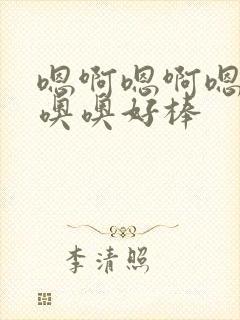 嗯啊嗯啊嗯
噢噢好棒
李清照